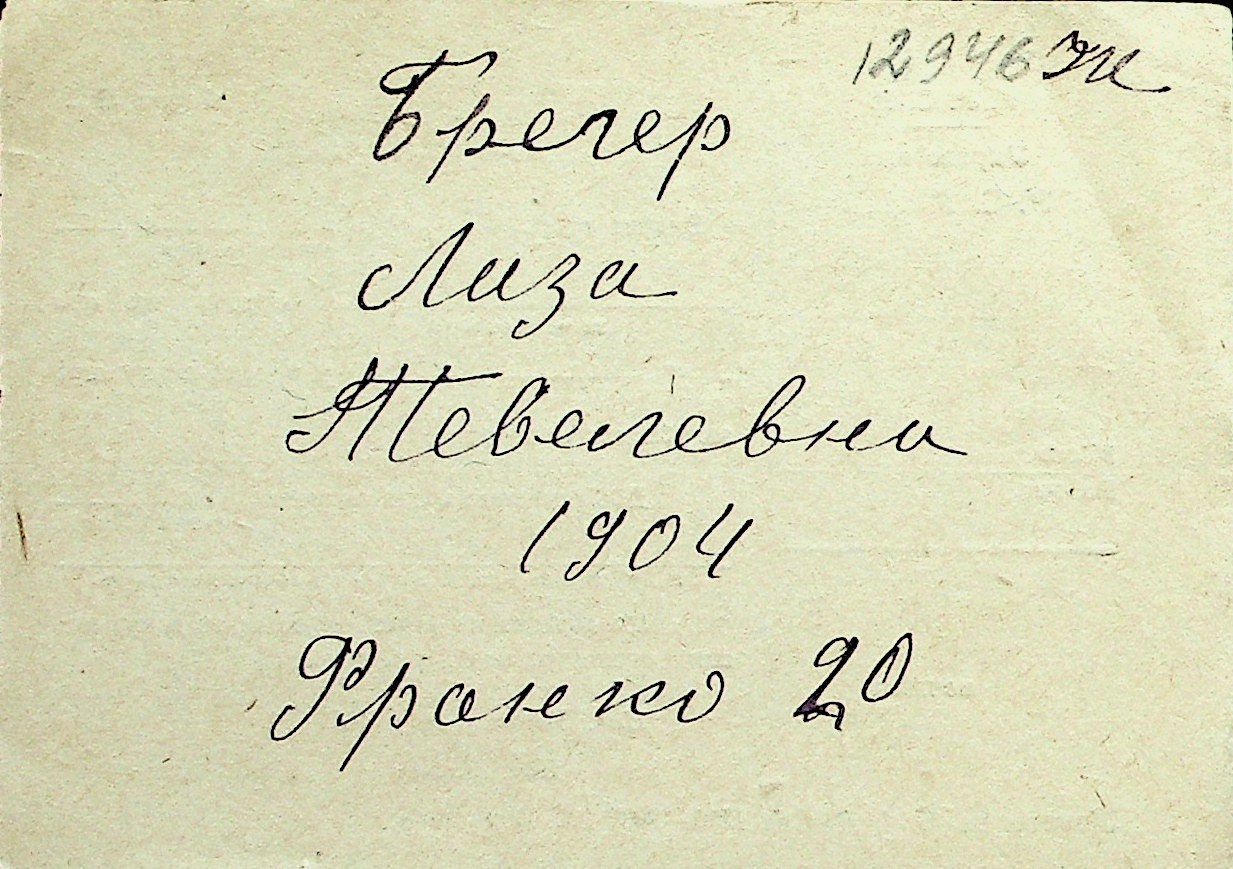 12946 Ж
Брегер
Лиза
Тевелевна
1904
Франко 20